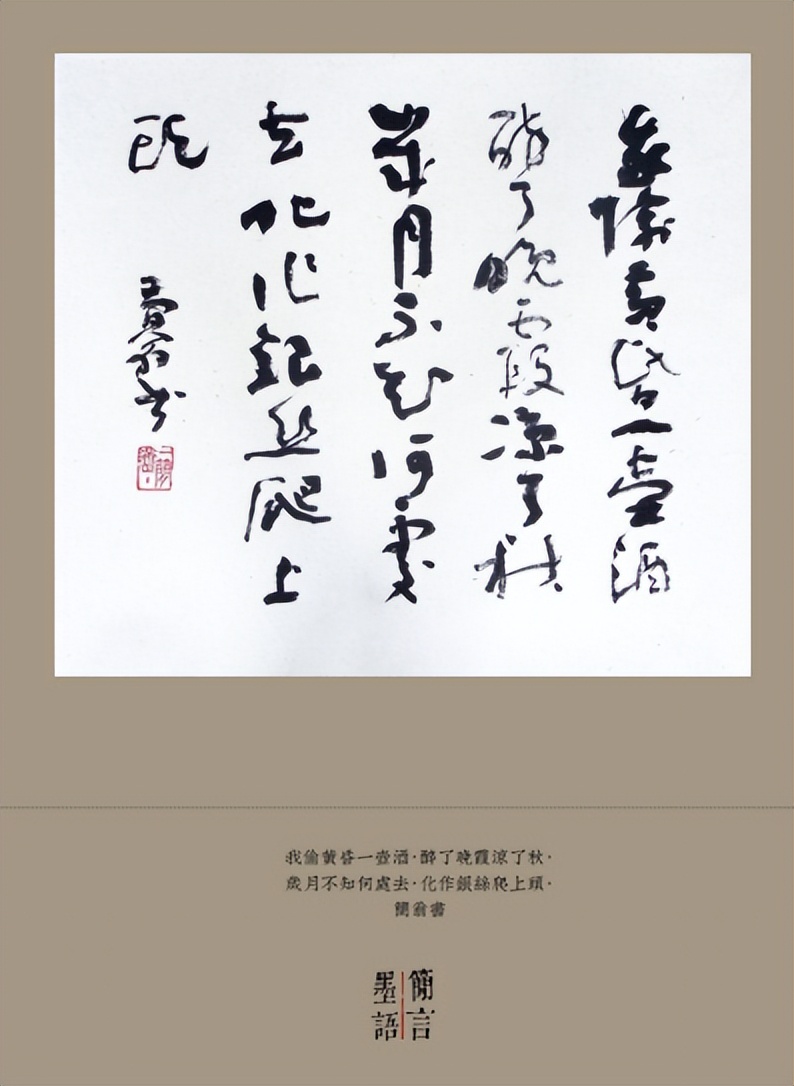 我偷黄昏一壺酒
醉了晚霞凉了秋
歲月不知何處
去化作銀絲爬上
頭
簡翁書
我偷黄昏一壺酒·醉了晚霞涼了秋·
歲月不知何處去·化作銀絲爬上頭·
簡翁書
簡言
墨語